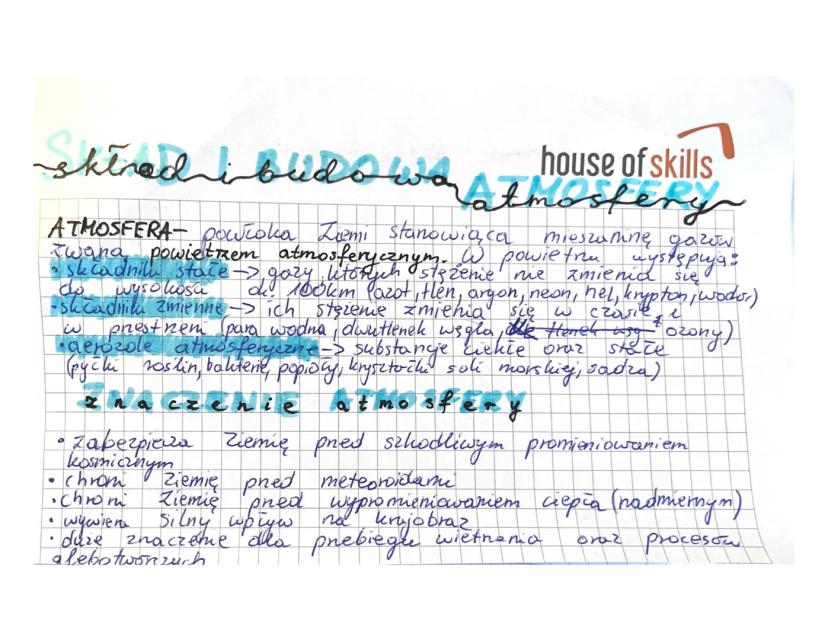 SKŁAD I BUDOWA ATMOSFERY
skład i budowa atmosfery
house of skills
ATMOSFERA- powłoka Ziemi stanowiąca mieszaninę gazów
zwana powietrzem atmosferycznym. W powietrzu występują:
• składniki stałe -> gazy, których stężenie nie zmienia się
do wysokości ok. 100km (azot, tlen, argon, neon, hel, krypton, wodór)
• składniki zmienne -> ich stężenie zmienia się w czasie i
w przestrzeni (para wodna, dwutlenek węgla, ozony)
• aerozole atmosferyczne -> substancje ciekłe oraz stałe
(pyłki roślin, bakterie, popioły, kryształki soli morskiej, sadza)
ZNACZENIE ATMOSFERY
• zabezpiecza Ziemię przed szkodliwym promieniowaniem
kosmicznym
• chroni Ziemię przed meteoroidami
• chroni Ziemię przed wypromieniowaniem ciepła (nadmiernym)
• wywiera silny wpływ na krajobraz
• duże znaczenie dla przebiegu wietrzenia oraz procesów
glebotwórczych